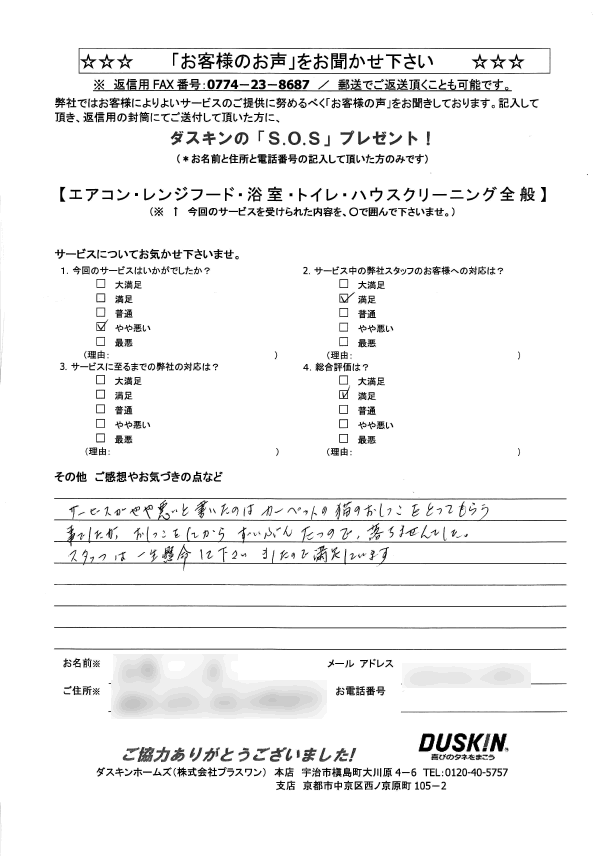 ☆☆☆　「お客様のお声」をお聞かせ下さい　☆☆☆
※ 返信用FAX番号：0774－23－8687 ／ 郵送でご返送頂くことも可能です。
弊社ではお客様によりよいサービスのご提供に努めるべく「お客様の声」をお聞きしております。記入して
頂き、返信用の封筒にてご送付して頂いた方に、
ダスキンの「S.O.S」プレゼント！
（＊お名前と住所と電話番号の記入して頂いた方のみです）
【エアコン・レンジフード・浴室・トイレ・ハウスクリーニング全般】
（※ ↑ 今回のサービスを受けられた内容を、〇で囲んで下さいませ。）
サービスについてお気かせ下さいませ。
1. 今回のサービスはいかがでしたか？
□ 大満足
□ 満足
□ 普通
☑ やや悪い
□ 最悪
（理由：　）
2. サービス中の弊社スタッフのお客様への対応は？
□ 大満足
☑ 満足
□ 普通
□ やや悪い
□ 最悪
（理由：　）
3. サービスに至るまでの弊社の対応は？
□ 大満足
□ 満足
□ 普通
□ やや悪い
□ 最悪
（理由：　）
4. 総合評価は？
□ 大満足
☑ 満足
□ 普通
□ やや悪い
□ 最悪
（理由：　）
その他 ご感想やお気づきの点など
サービスがやや悪いと書いたのは カーペットの猫のおしっこをとってもらう
事でしたが、おしっこをしてから ずいぶんたつので、落ちませんでした。
スタッフは一生懸命して下さいましたので満足しています
お名前※
メール アドレス
ご住所※
お電話番号
ご協力ありがとうございました！
DUSKIN
喜びのタネをまこう
ダスキンホームズ（株式会社プラスワン） 本店 宇治市槇島町大川原４－６ TEL：0120-40-5757
支店 京都市中京区西ノ京原町105－2